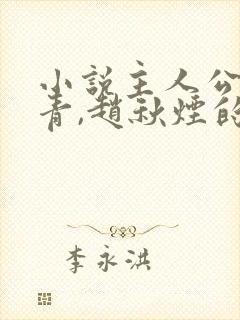 小說主人公
青,趙秋煙的
李永洪